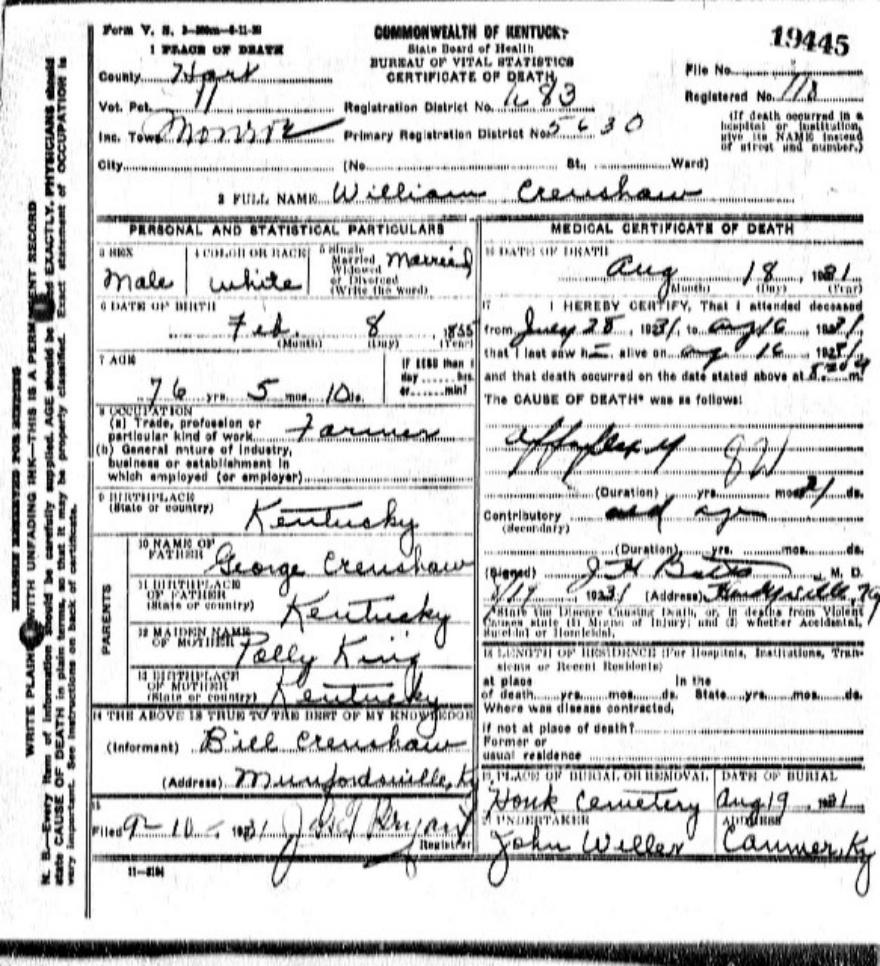 Form V. S.
COMMONWEALTH OF KENTUCKY
19445
1 PLACE OF DEATH
State Board of Health
BUREAU OF VITAL STATISTICS
CERTIFICATE OF DEATH
County Hart
File No.
Vot. Pct. 11
Registration District No. 683
Registered No. 118
Inc. Town Monroe
Primary Registration District No. 5630
(If death occurred in a hospital or institution, give its NAME instead of street and number.)
City (No. St., Ward)
2 FULL NAME William Crenshaw
PERSONAL AND STATISTICAL PARTICULARS
3 SEX Male
4 COLOR OR RACE White
5 Single Married Widowed or Divorced (Write the word) Married
6 DATE OF BIRTH
Feb. 8 1855
(Month) (Day) (Year)
7 AGE
76 yrs. 5 mos. 10 ds.
IF LESS than 1 day hrs. or min?
8 OCCUPATION
(a) Trade, profession or particular kind of work Farmer
(b) General nature of industry, business or establishment in which employed (or employer)
9 BIRTHPLACE
(State or country) Kentucky
PARENTS
10 NAME OF FATHER George Crenshaw
11 BIRTHPLACE OF FATHER (State or country) Kentucky
12 MAIDEN NAME OF MOTHER Polly King
13 BIRTHPLACE OF MOTHER (State or country) Kentucky
14 THE ABOVE IS TRUE TO THE BEST OF MY KNOWLEDGE
(Informant) Bill Crenshaw
(Address) Munfordsville, Ky
15
Filed 9-10-1931
Registrar
MEDICAL CERTIFICATE OF DEATH
16 DATE OF DEATH
Aug 18, 1931
(Month) (Day) (Year)
17 I HEREBY CERTIFY, That I attended deceased
from July 28, 1931, to Aug 16, 1931,
that I last saw h alive on Aug 16, 1931,
and that death occurred on the date stated above at m.
The CAUSE OF DEATH* was as follows:
82
(Duration) yrs. mos. 21 ds.
Contributory old age
(Secondary)
(Duration) yrs. mos. ds.
(Signed) J H M. D.
1931 (Address)
*State the Disease Causing Death, or, in deaths from Violent Causes state (1) Means of Injury; and (2) whether Accidental, Suicidal or Homicidal.
18 LENGTH OF RESIDENCE (For Hospitals, Institutions, Transients or Recent Residents)
at place In the
of death yrs. mos. ds. State yrs. mos. ds.
Where was disease contracted,
if not at place of death?
Former or
usual residence
19 PLACE OF BURIAL OR REMOVAL
DATE OF BURIAL
Cemetery
Aug 19 1931
20 UNDERTAKER
ADDRESS
John
Canmer, Ky
11-3194
MARGIN RESERVED FOR BINDING
WRITE PLAINLY WITH UNFADING INK—THIS IS A PERMANENT RECORD
N. B.—Every item of information should be carefully supplied. AGE should be EXACTLY. PHYSICIANS should
state CAUSE OF DEATH in plain terms, so that it may be properly classified. Exact statement of OCCUPATION is
very important. See instructions on back of certificate.